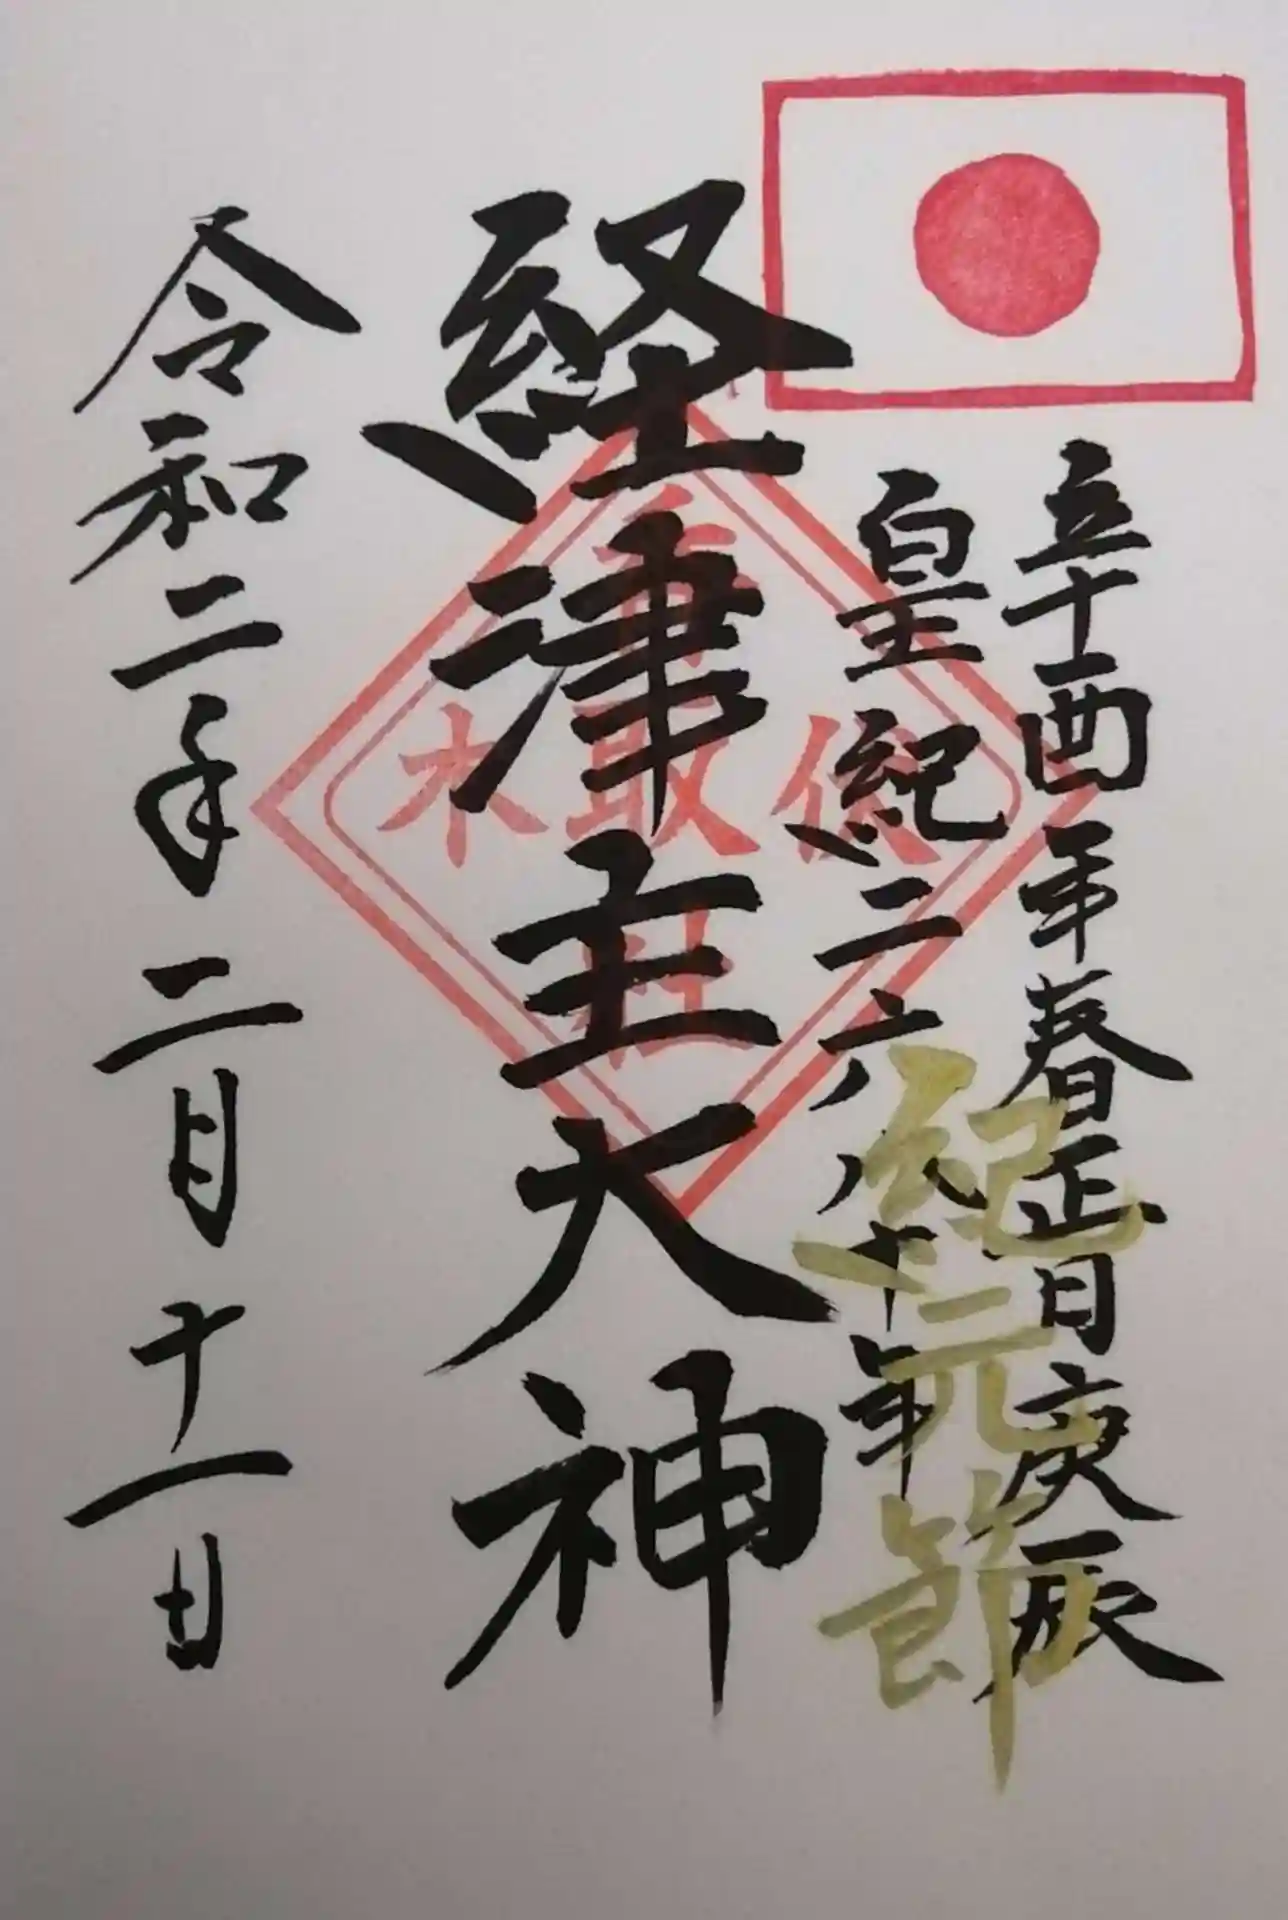 辛酉年春正日庚辰
皇紀二六八十年
紀元節
経津主大神
香取社
木
令和二年二月十一日